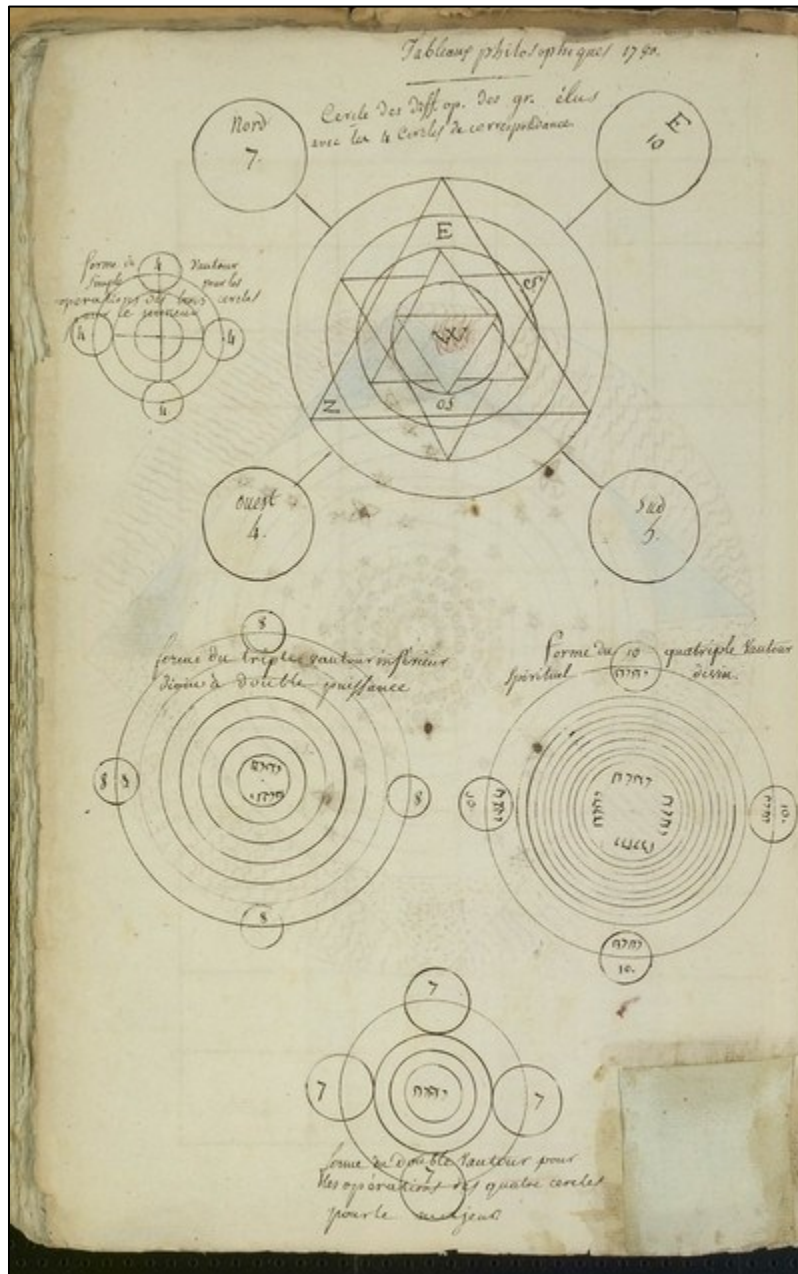 Tableaux philosophiques 1780.
Cercle des diff. op. des gr. élus
avec les 4 Cercles de correspondance.
Nord
7.
E
10
E
S
N
OS
ouest
4.
Sud
forme du 4 Vautour
simple pour les
opérations des trois cercles
pour le mineur
4
4
4
8
forme du triple vautour inférieur
à double puissance
8
8
8
יהוה
forme du 10 quatriple Vautour
Spirituel יהוה divin.
10. יהוה
יהוה
יהוה
יהוה
יהוה
יהוה 10.
יהוה
10.
7
7
7
יהוה
forme du double Vautour pour
les opérations des quatre cercles
7
pour le majeur.